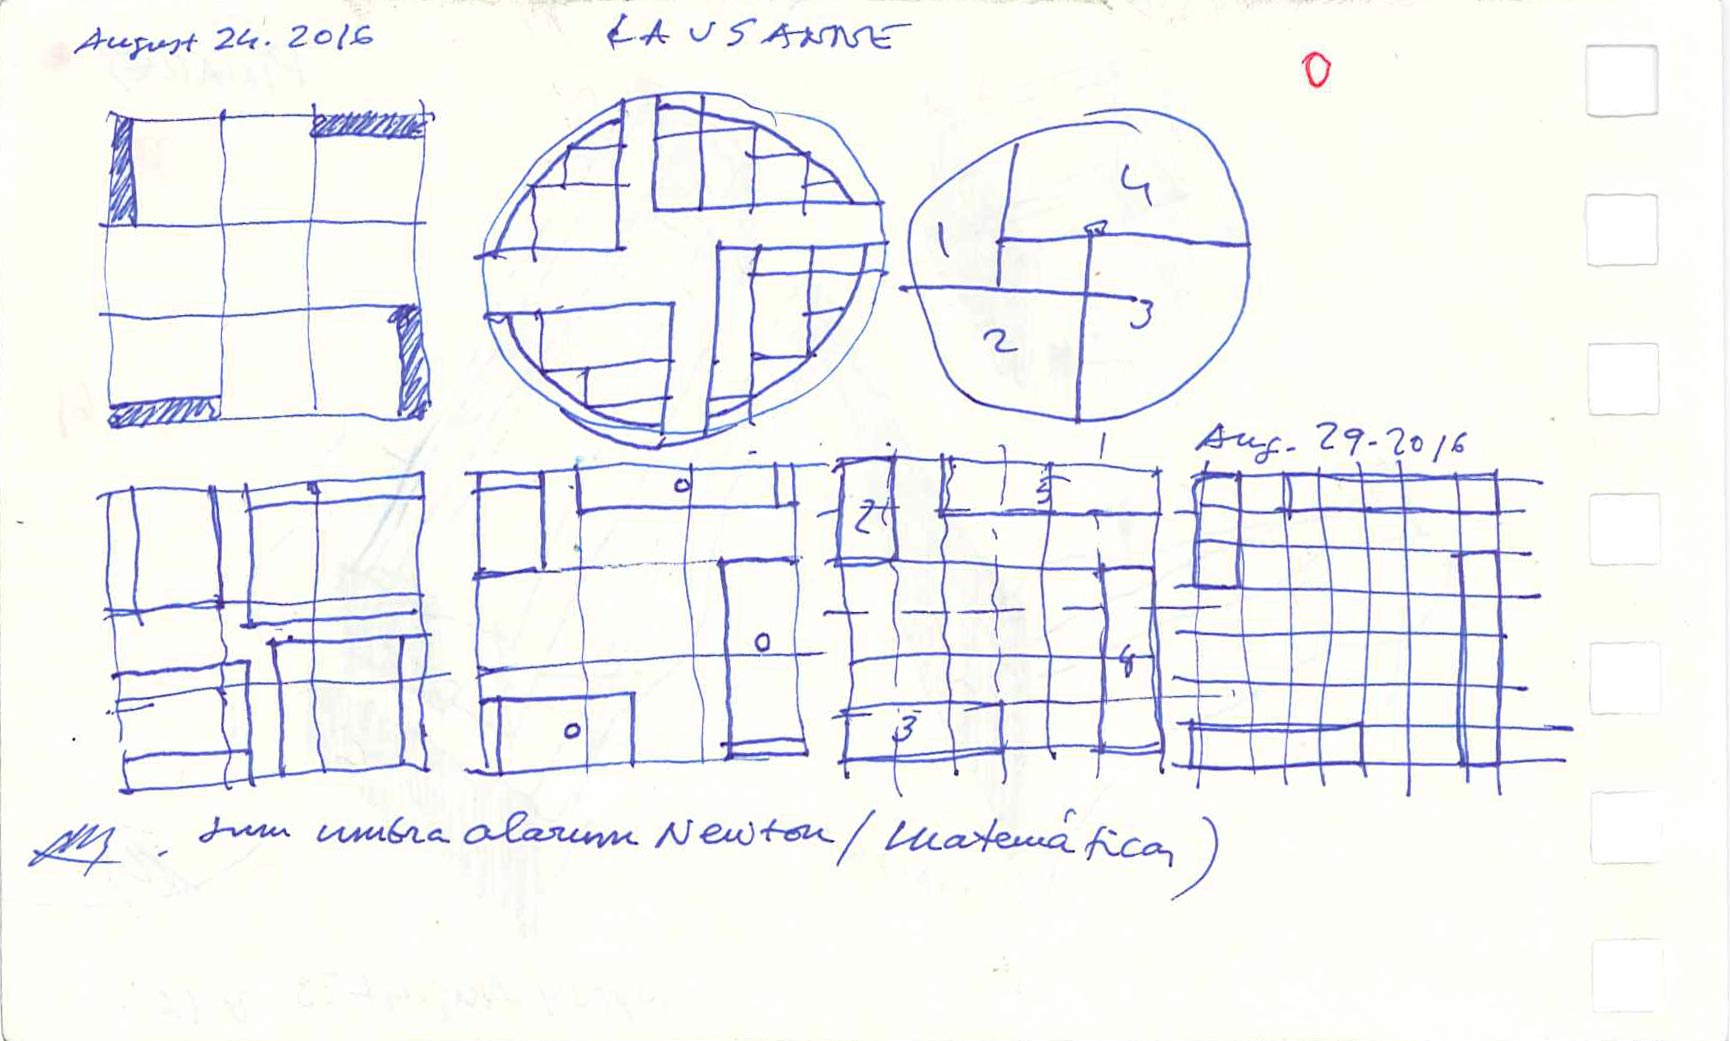 August 24. 2016
LAUSANNE
0
4
1
3
2
Aug. 29-2016
0
2
5
0
4
0
3
sum umbra alarum Newton / Matemática)